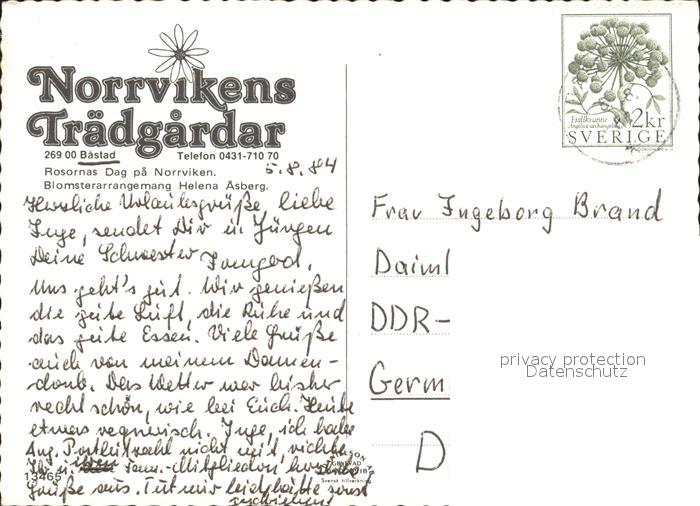 Norrvikens
Trädgårdar
269 00 Båstad Telefon 0431-710 70
Rosornas Dag på Norrviken.
Blomsterarrangemang Helena Åsberg.
5.8.84
Herzliche Urlaubsgrüße, liebe
Inge, sendet Dir u. Jürgen
Deine Schwester
Uns geht's gut. Wir genießen
die gute Luft, die Ruhe und
das gute Essen. Viele Grüße
auch von meinem Damen-
Das Wetter war bisher
recht schön, wie bei Euch. Heute
etwas regnerisch. Inge, ich habe
nicht mit, richte
Fam.-Mitgliedern
Grüße aus. Tut mir leid, hätte sonst
geschrieben
13465
Svensk tillverkning
Fjällkvanne
Angelica archangelica
2kr
SVERIGE
Frau Ingeborg Brand
Daiml
DDR-
Germ
D
privacy protection
Datenschutz